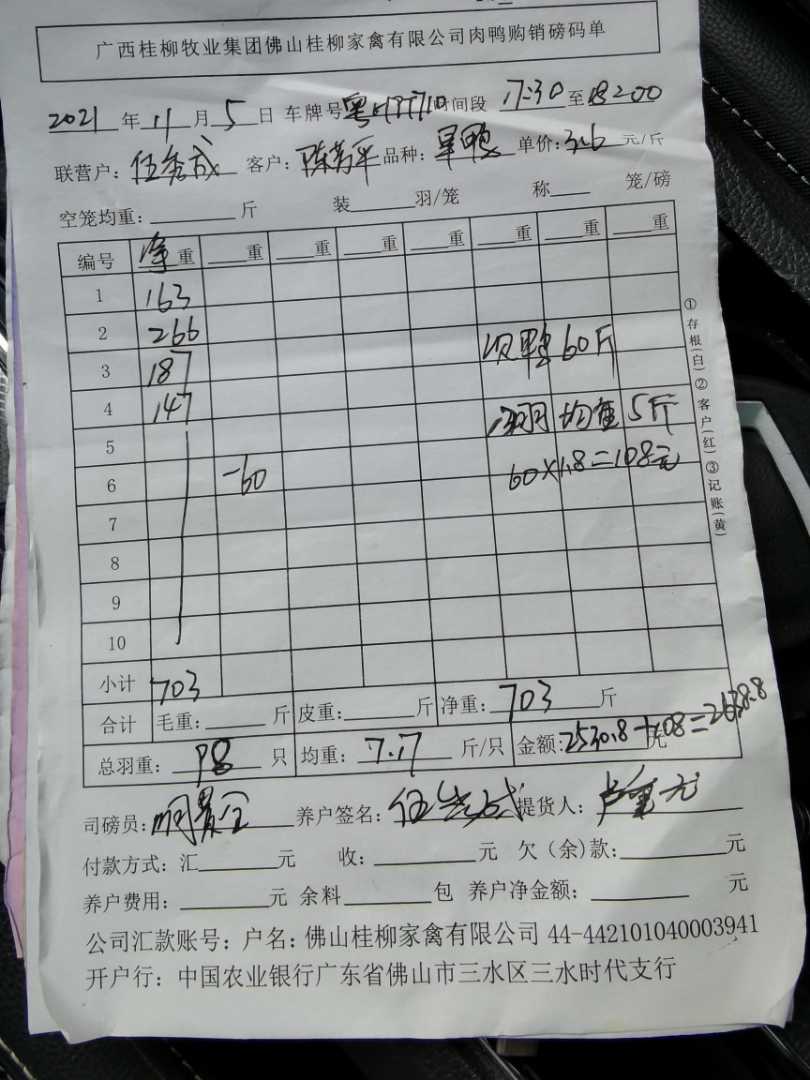 广西桂柳牧业集团佛山桂柳家禽有限公司肉鸭购销磅码单
2021年11月5日 车牌号粤 时间段 17:30至18:00
联营户: 客户: 品种: 单价:3.6元/斤
空笼均重:____斤 装____羽/笼 称____笼/磅
编号 净重 __重 __重 __重 __重 __重 __重 __重
1 163
2 266
3 187 鸭60斤
4 147 均重5斤
5
6 -60 60×1.8=108元
7
8
9
10
小计 703
合计 毛重:____斤 皮重:____斤 净重:703斤
总羽重:98只 均重:7.17斤/只 金额:2530.8+108=2638.8元
司磅员: 养户签名: 提货人:
付款方式:汇____元 收:____元 欠(余)款:____元
养户费用:____元 余料____包 养户净金额:____元
公司汇款账号:户名:佛山桂柳家禽有限公司 44-442101040003941
开户行:中国农业银行广东省佛山市三水区三水时代支行
①存根(白)②客户(红)③记账(黄)